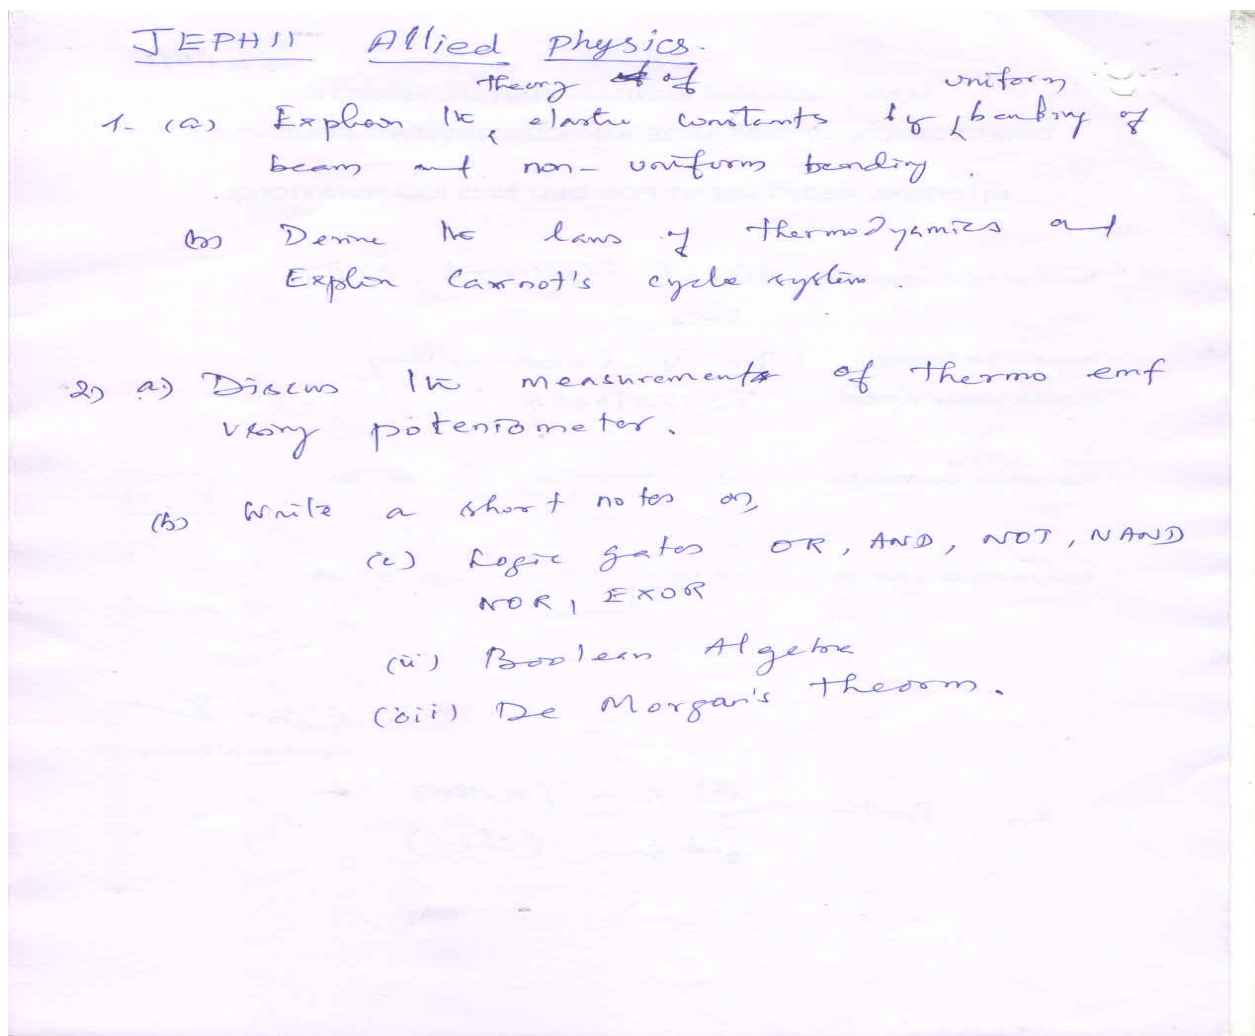 JEPH11 Allied Physics.
theory of uniform
1- (a) Explain the elastic constants by bending of
beam and non-uniform bending.
(b) Derive the laws of thermodyamics and
Explin Carnot's cycle system.
2) a) Discuss the measurements of thermo emf
using poteniometer.
(b) Write a short notes on,
(i) Logic gates OR, AND, NOT, NAND
NOR, EXOR
(ii) Boolean Algebra
(iii) De Morgan's theorm.